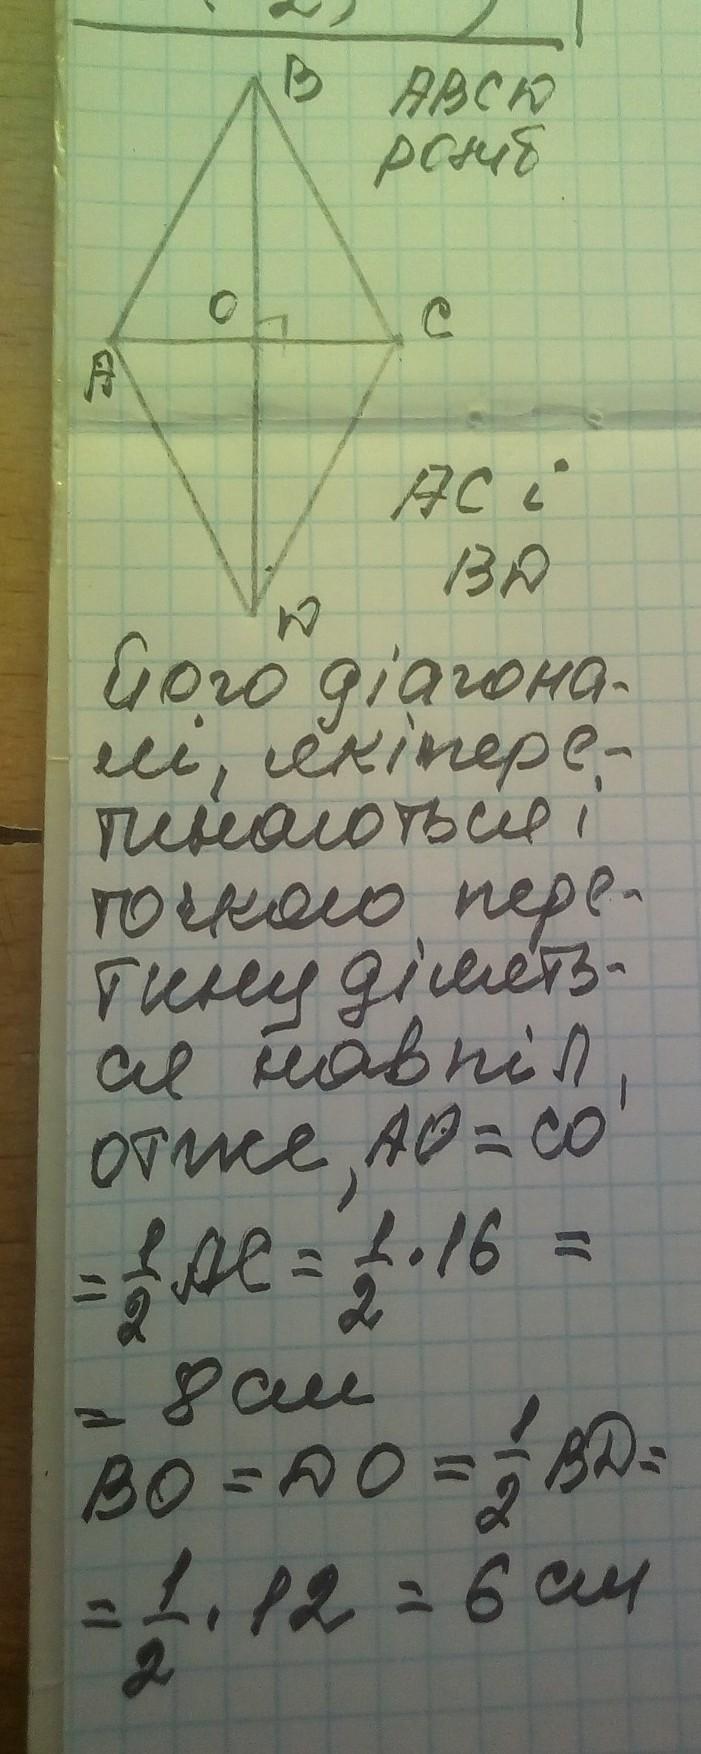 B
ABCD
ромб
O
C
A
AC і
BD
D
його діагона-
лі, які пере-
тинаються і
точкою пере-
тину ділять-
ся навпіл,
отже, AO = CO
= 1/2 AC = 1/2 · 16 =
= 8 см
BO = DO = 1/2 BD =
= 1/2 · 12 = 6 см